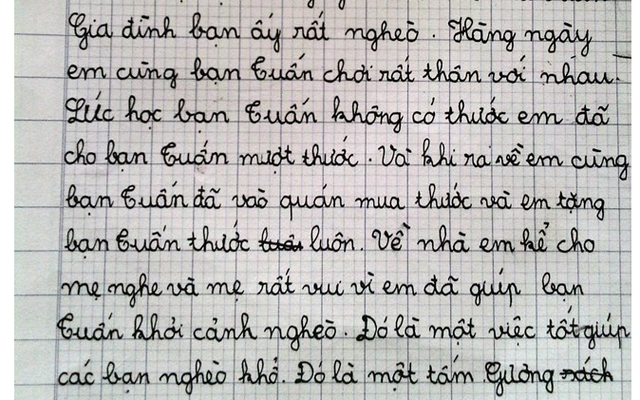 Gia đình bạn ấy rất nghèo. Hàng ngày
em cùng bạn Tuấn chơi rất thân với nhau.
Lúc học bạn Tuấn không có thước em đã
cho bạn Tuấn mượt thước. Và khi ra về em cùng
bạn Tuấn đã vào quán mua thước và em tặng
bạn Tuấn thước luôn. Về nhà em kể cho
mẹ nghe và mẹ rất vui vì em đã giúp bạn
Tuấn khỏi cảnh nghèo. Đó là một việc tốt giúp
các bạn nghèo khổ. Đó là một tấm Gương sách